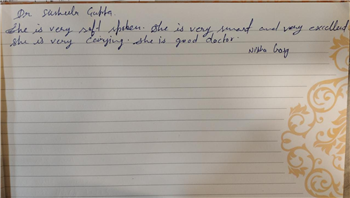 Dr. Susheela Gupta
She is very soft spoken. She is very smart and very excellent
She is very carrying. she is good doctor.
Nisha